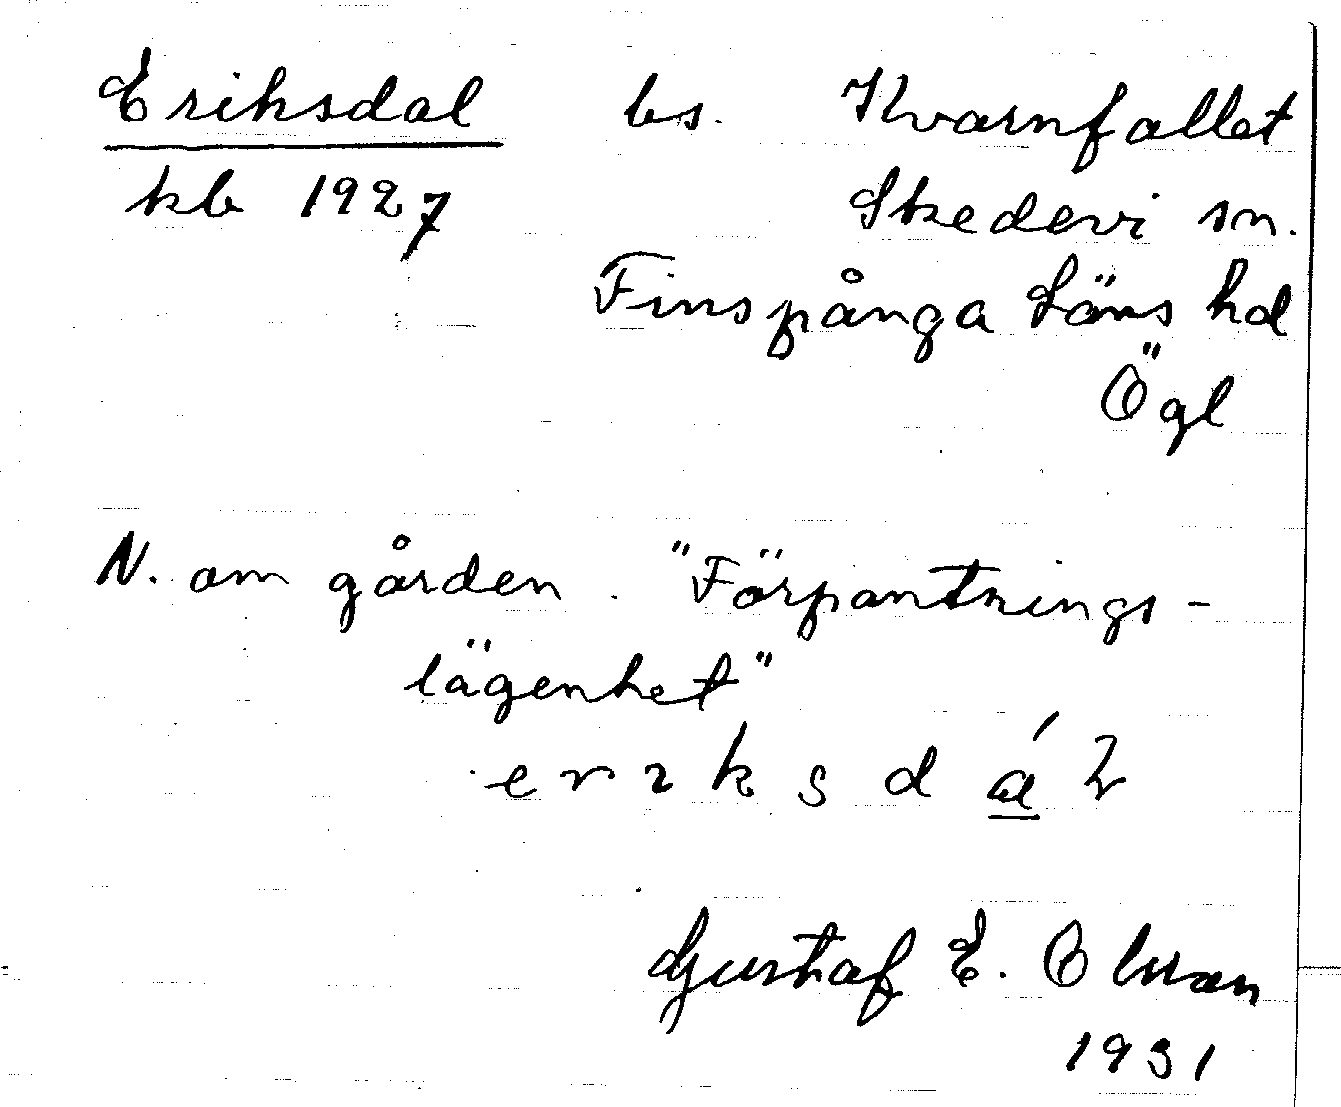 Eriksdal bs. Kvarnfallet
kb 1927 Skedevi sn.
Finspånga Läns hd
Ögl
N. om gården. "Förpantnings-
lägenhet"
eriksdál
Gustaf E. Olsson
1931